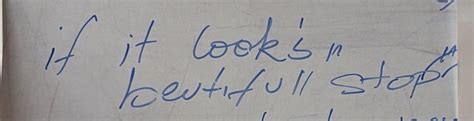 if it look's "
beutifull stop"